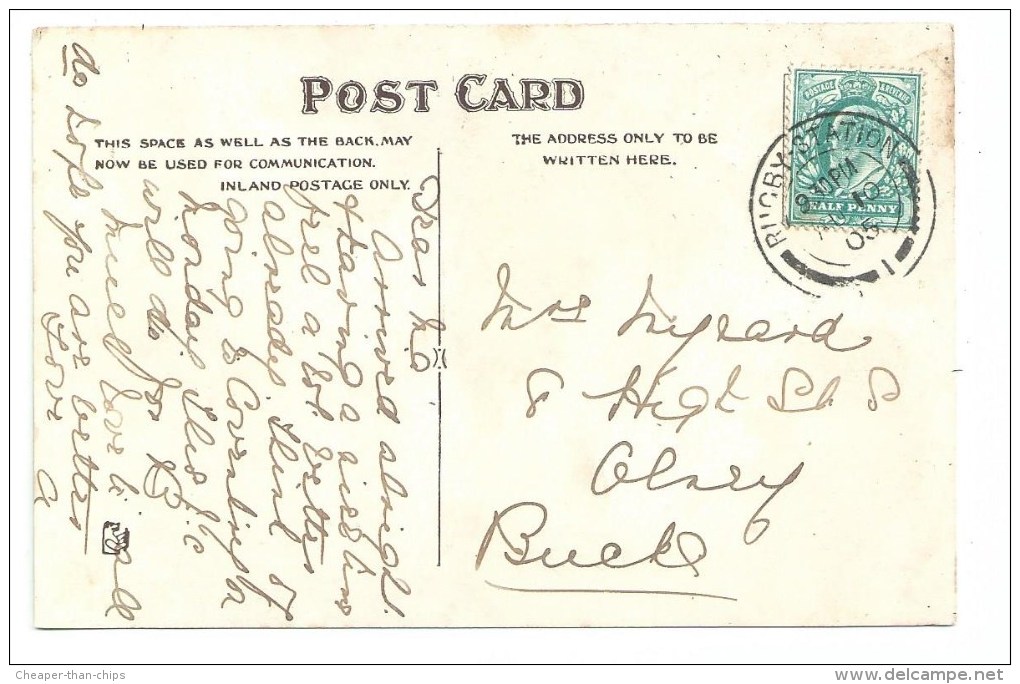 POST CARD
THIS SPACE AS WELL AS THE BACK, MAY
NOW BE USED FOR COMMUNICATION.
INLAND POSTAGE ONLY.
THE ADDRESS ONLY TO BE
WRITTEN HERE.
POSTAGE & REVENUE
HALF PENNY
RUGBY STATION
9.40PM
AU 10
05
1
Dear
Arrived alright.
& having a
feel a lot better
already. Think I
going to Coventry
Monday this P/C
will do for B
much love to all
do hope you are better
Love
Mrs
8 High St S
Olney
Bucks
Cheaper-than-chips
delcampe.net